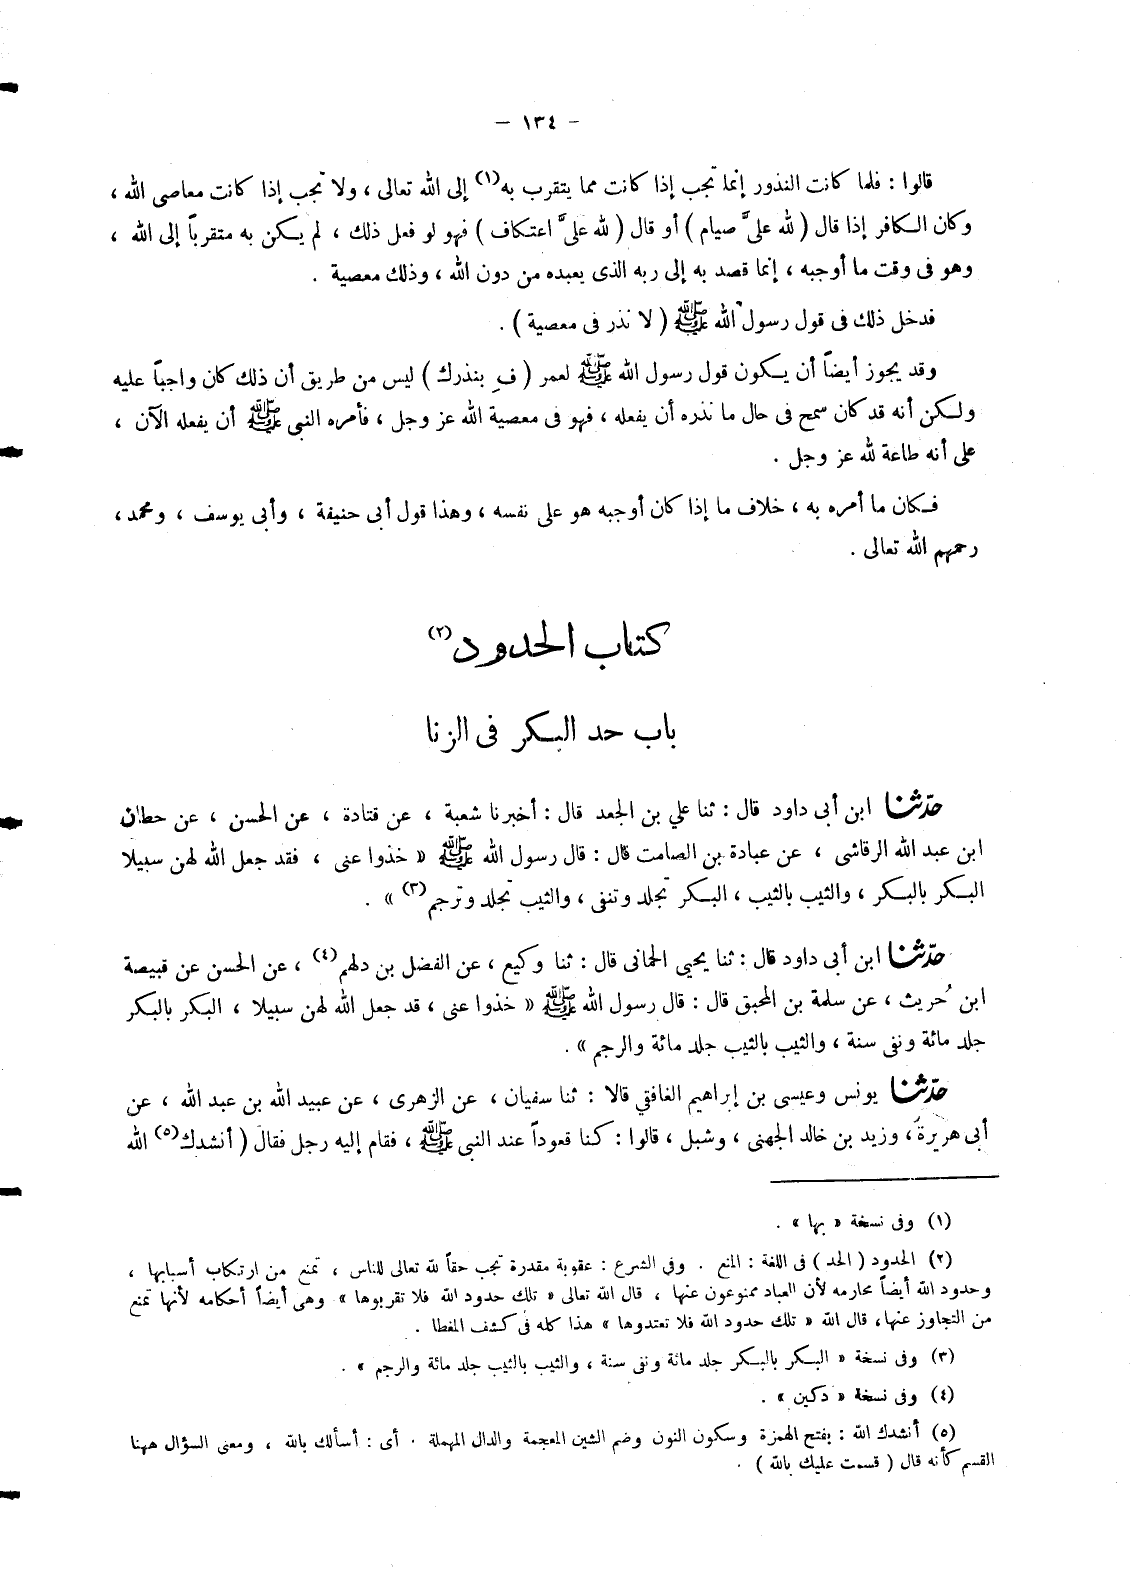 — ١٣٤ —
قالوا : فلما كانت النذور إنما تجب إذا كانت مما يتقرب به(١) إلى الله تعالى ، ولا تجب إذا كانت معاصى الله ،
وكان الكافر إذا قال ( لله علىَّ صيام ) أو قال ( لله علىَّ اعتكاف ) فهو لو فعل ذلك ، لم يكن به متقرباً إلى الله ،
وهو فى وقت ما أوجبه ، إنما قصد به إلى ربه الذى يعبده من دون الله ، وذلك معصية .
فدخل ذلك فى قول رسول الله ﷺ ( لا نذر فى معصية ) .
وقد يجوز أيضاً أن يكون قول رسول الله ﷺ لعمر ( فِ بنذرك ) ليس من طريق أن ذلك كان واجباً عليه
ولكن أنه قد كان سمح فى حال ما نذره أن يفعله ، فهو فى معصية الله عز وجل ، فأمره النبى ﷺ أن يفعله الآن ،
على أنه طاعة لله عز وجل .
فكان ما أمره به ، خلاف ما إذا كان أوجبه هو على نفسه ، وهذا قول أبى حنيفة ، وأبى يوسف ، ومحمد ،
رحمهم الله تعالى .
كتاب الحدود(٢)
باب حد البكر فى الزنا
حدّثنا ابن أبى داود قال : ثنا علي بن الجعد قال : أخبرنا شعبة ، عن قتادة ، عن الحسن ، عن حطان
ابن عبد الله الرقاشى ، عن عبادة بن الصامت قال : قال رسول الله ﷺ « خذوا عنى ، فقد جعل الله لهن سبيلا
البكر بالبكر ، والثيب بالثيب ، البكر تجلد وتنفى ، والثيب تجلد وترجم(٣) » .
حدّثنا ابن أبى داود قال : ثنا يحيى الحمانى قال : ثنا وكيع ، عن الفضل بن دلهم(٤) ، عن الحسن عن قبيصة
ابن حُريث ، عن سلمة بن المحبق قال : قال رسول الله ﷺ « خذوا عنى ، قد جعل الله لهن سبيلا ، البكر بالبكر
جلد مائة ونفى سنة ، والثيب بالثيب جلد مائة والرجم » .
حدّثنا يونس وعيسى بن إبراهيم الغافقي قالا : ثنا سفيان ، عن الزهرى ، عن عبيد الله بن عبد الله ، عن
أبى هريرة ، وزيد بن خالد الجهنى ، وشبل ، قالوا : كنا قعوداً عند النبى ﷺ ، فقام إليه رجل فقال ( أنشدك(٥) الله
(١) وفى نسخة « بها » .
(٢) الحدود ( الحد ) فى اللغة : المنع . وفى الشرع : عقوبة مقدرة تجب حقاً لله تعالى للناس ، تمنع من ارتكاب أسبابها ،
وحدود الله أيضاً محارمه لأن العباد ممنوعون عنها ، قال الله تعالى « تلك حدود الله فلا تقربوها » وهى أيضاً أحكامه لأنها تمنع
من التجاوز عنها، قال الله « تلك حدود الله فلا تعتدوها » هذا كله فى كشف المغطا .
(٣) وفى نسخة « البكر بالبكر جلد مائة ونفى سنة ، والثيب بالثيب جلد مائة والرجم » .
(٤) وفى نسخة « دكين » .
(٥) أنشدك الله : بفتح الهمزة وسكون النون وضم الشين المعجمة والدال المهملة . أى : أسألك بالله ، ومعنى السؤال ههنا
القسم كأنه قال ( قسمت عليك بالله ) .